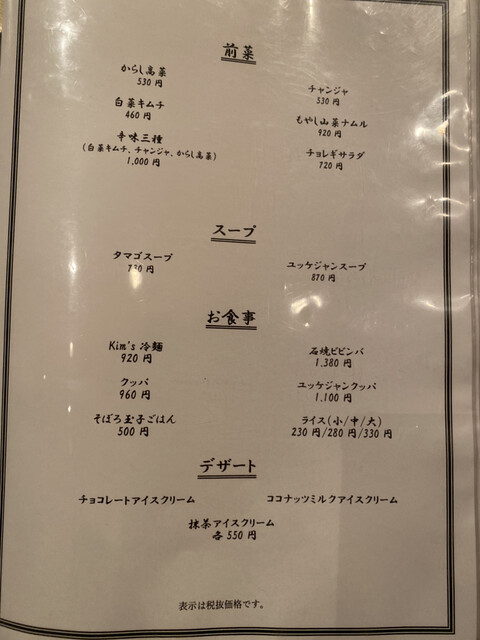 前菜
からし高菜
530 円
チャンジャ
530 円
白菜キムチ
460 円
もやし山菜ナムル
920 円
辛味三種
(白菜キムチ、チャンジャ、からし高菜)
1,000 円
チョレギサラダ
720 円
スープ
タマゴスープ
ユッケジャンスープ
870 円
お食事
Kim's 冷麺
920 円
石焼ビビンバ
1.380 円
クッパ
960 円
ユッケジャンクッパ
1.100 円
そぼろ玉子ごはん
500 円
ライス(小/中/大)
230 円/280 円/330 円
デザート
チョコレートアイスクリーム
ココナッツミルクアイスクリーム
抹茶アイスクリーム
各 550 円
表示は税抜価格です。